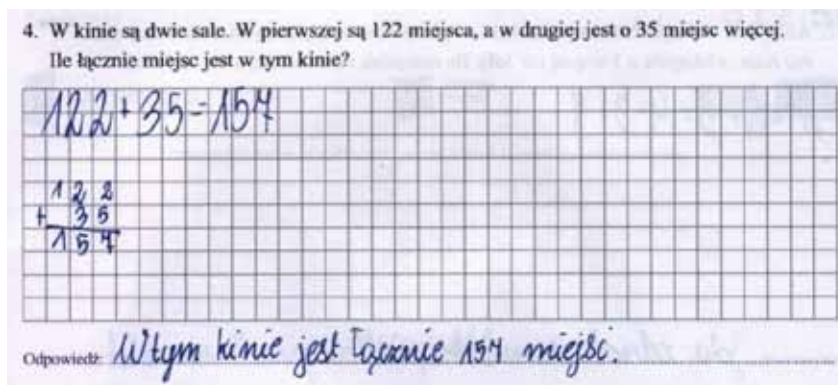 4. W kinie są dwie sale. W pierwszej są 122 miejsca, a w drugiej jest o 35 miejsc więcej.
Ile łącznie miejsc jest w tym kinie?
122+35=157
122
+ 35
157
Odpowiedź: W tym kinie jest łącznie 157 miejsc.